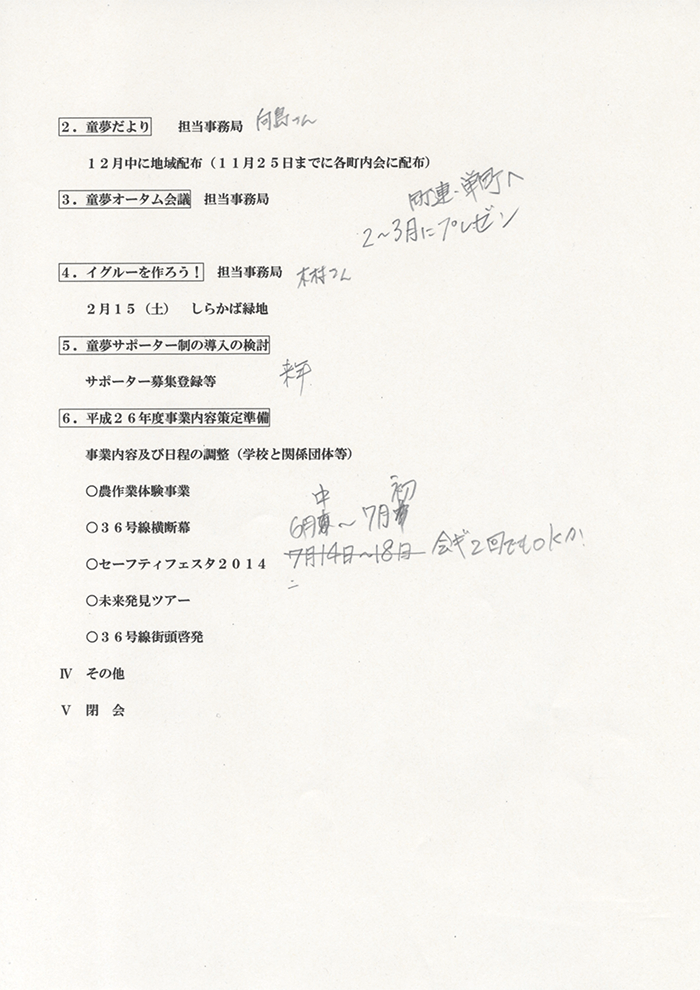 2．童夢だより　担当事務局　向島さん
12月中に地域配布（11月25日までに各町内会に配布）
3．童夢オータム会議　担当事務局
町連・単町へ
2～3月にプレゼン
4．イグルーを作ろう！　担当事務局　木村さん
2月15（土）　しらかば緑地
5．童夢サポーター制の導入の検討
サポーター募集登録等　来年
6．平成26年度事業内容策定準備
事業内容及び日程の調整（学校と関係団体等）
○農作業体験事業
中　初
○36号線横断幕　6月　～7月
○セーフティフェスタ2014　7月14日～18日　会ギ2回でもOKか！
○未来発見ツアー
○36号線街頭啓発
Ⅳ　その他
Ⅴ　閉　会